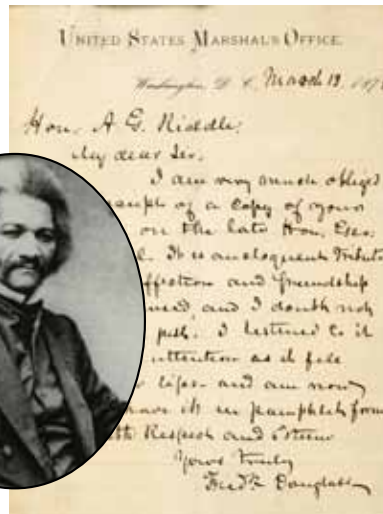 UNITED STATES MARSHAL'S OFFICE.
Washington, D. C. March 13, 187
Hon. A. G. Riddle:
My dear Sir,
I am very much obliged
of a copy of your
on the late Hon.
It is an eloquent Tribute
affection and friendship
and I doubt not
I listened to it
attention as it fell
lips - and am now
have it in pamphlet form
Respect and Esteem
Yours Truly
Fredk Douglass